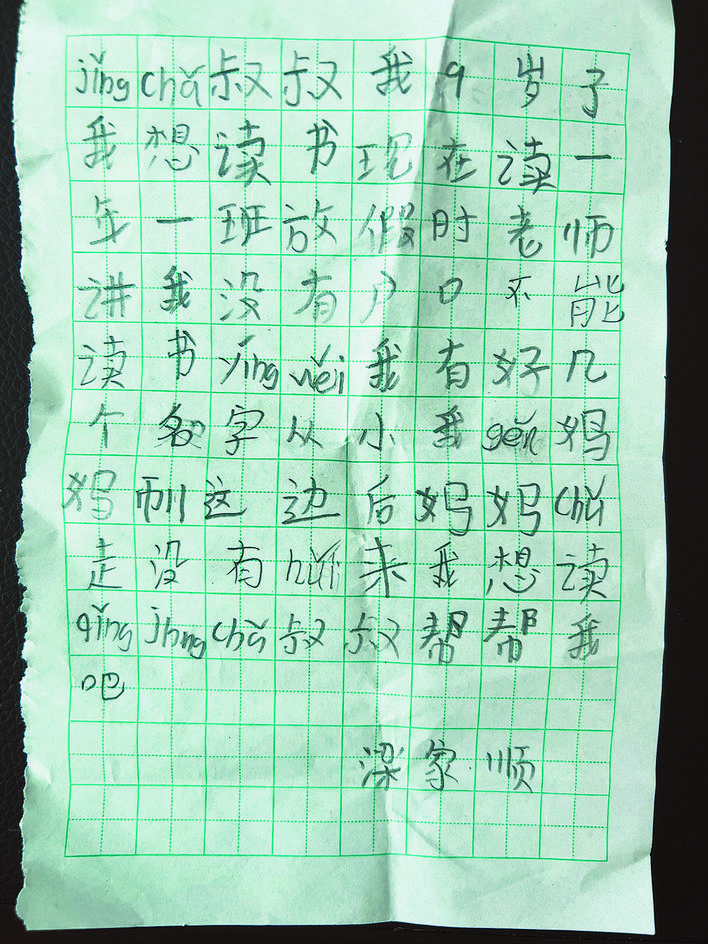 jǐng chǎ 叔叔我9岁了
我想读书现在读一
年一班放假时老师
讲我没有户口不能
读书 yīng wěi 我有好几
个名字从小我 gěn 妈
妈到这边后妈妈 chǔ
走没有 huǐ 来我想读
qǐng jǐng chǎ 叔叔帮帮我
吧
梁家顺